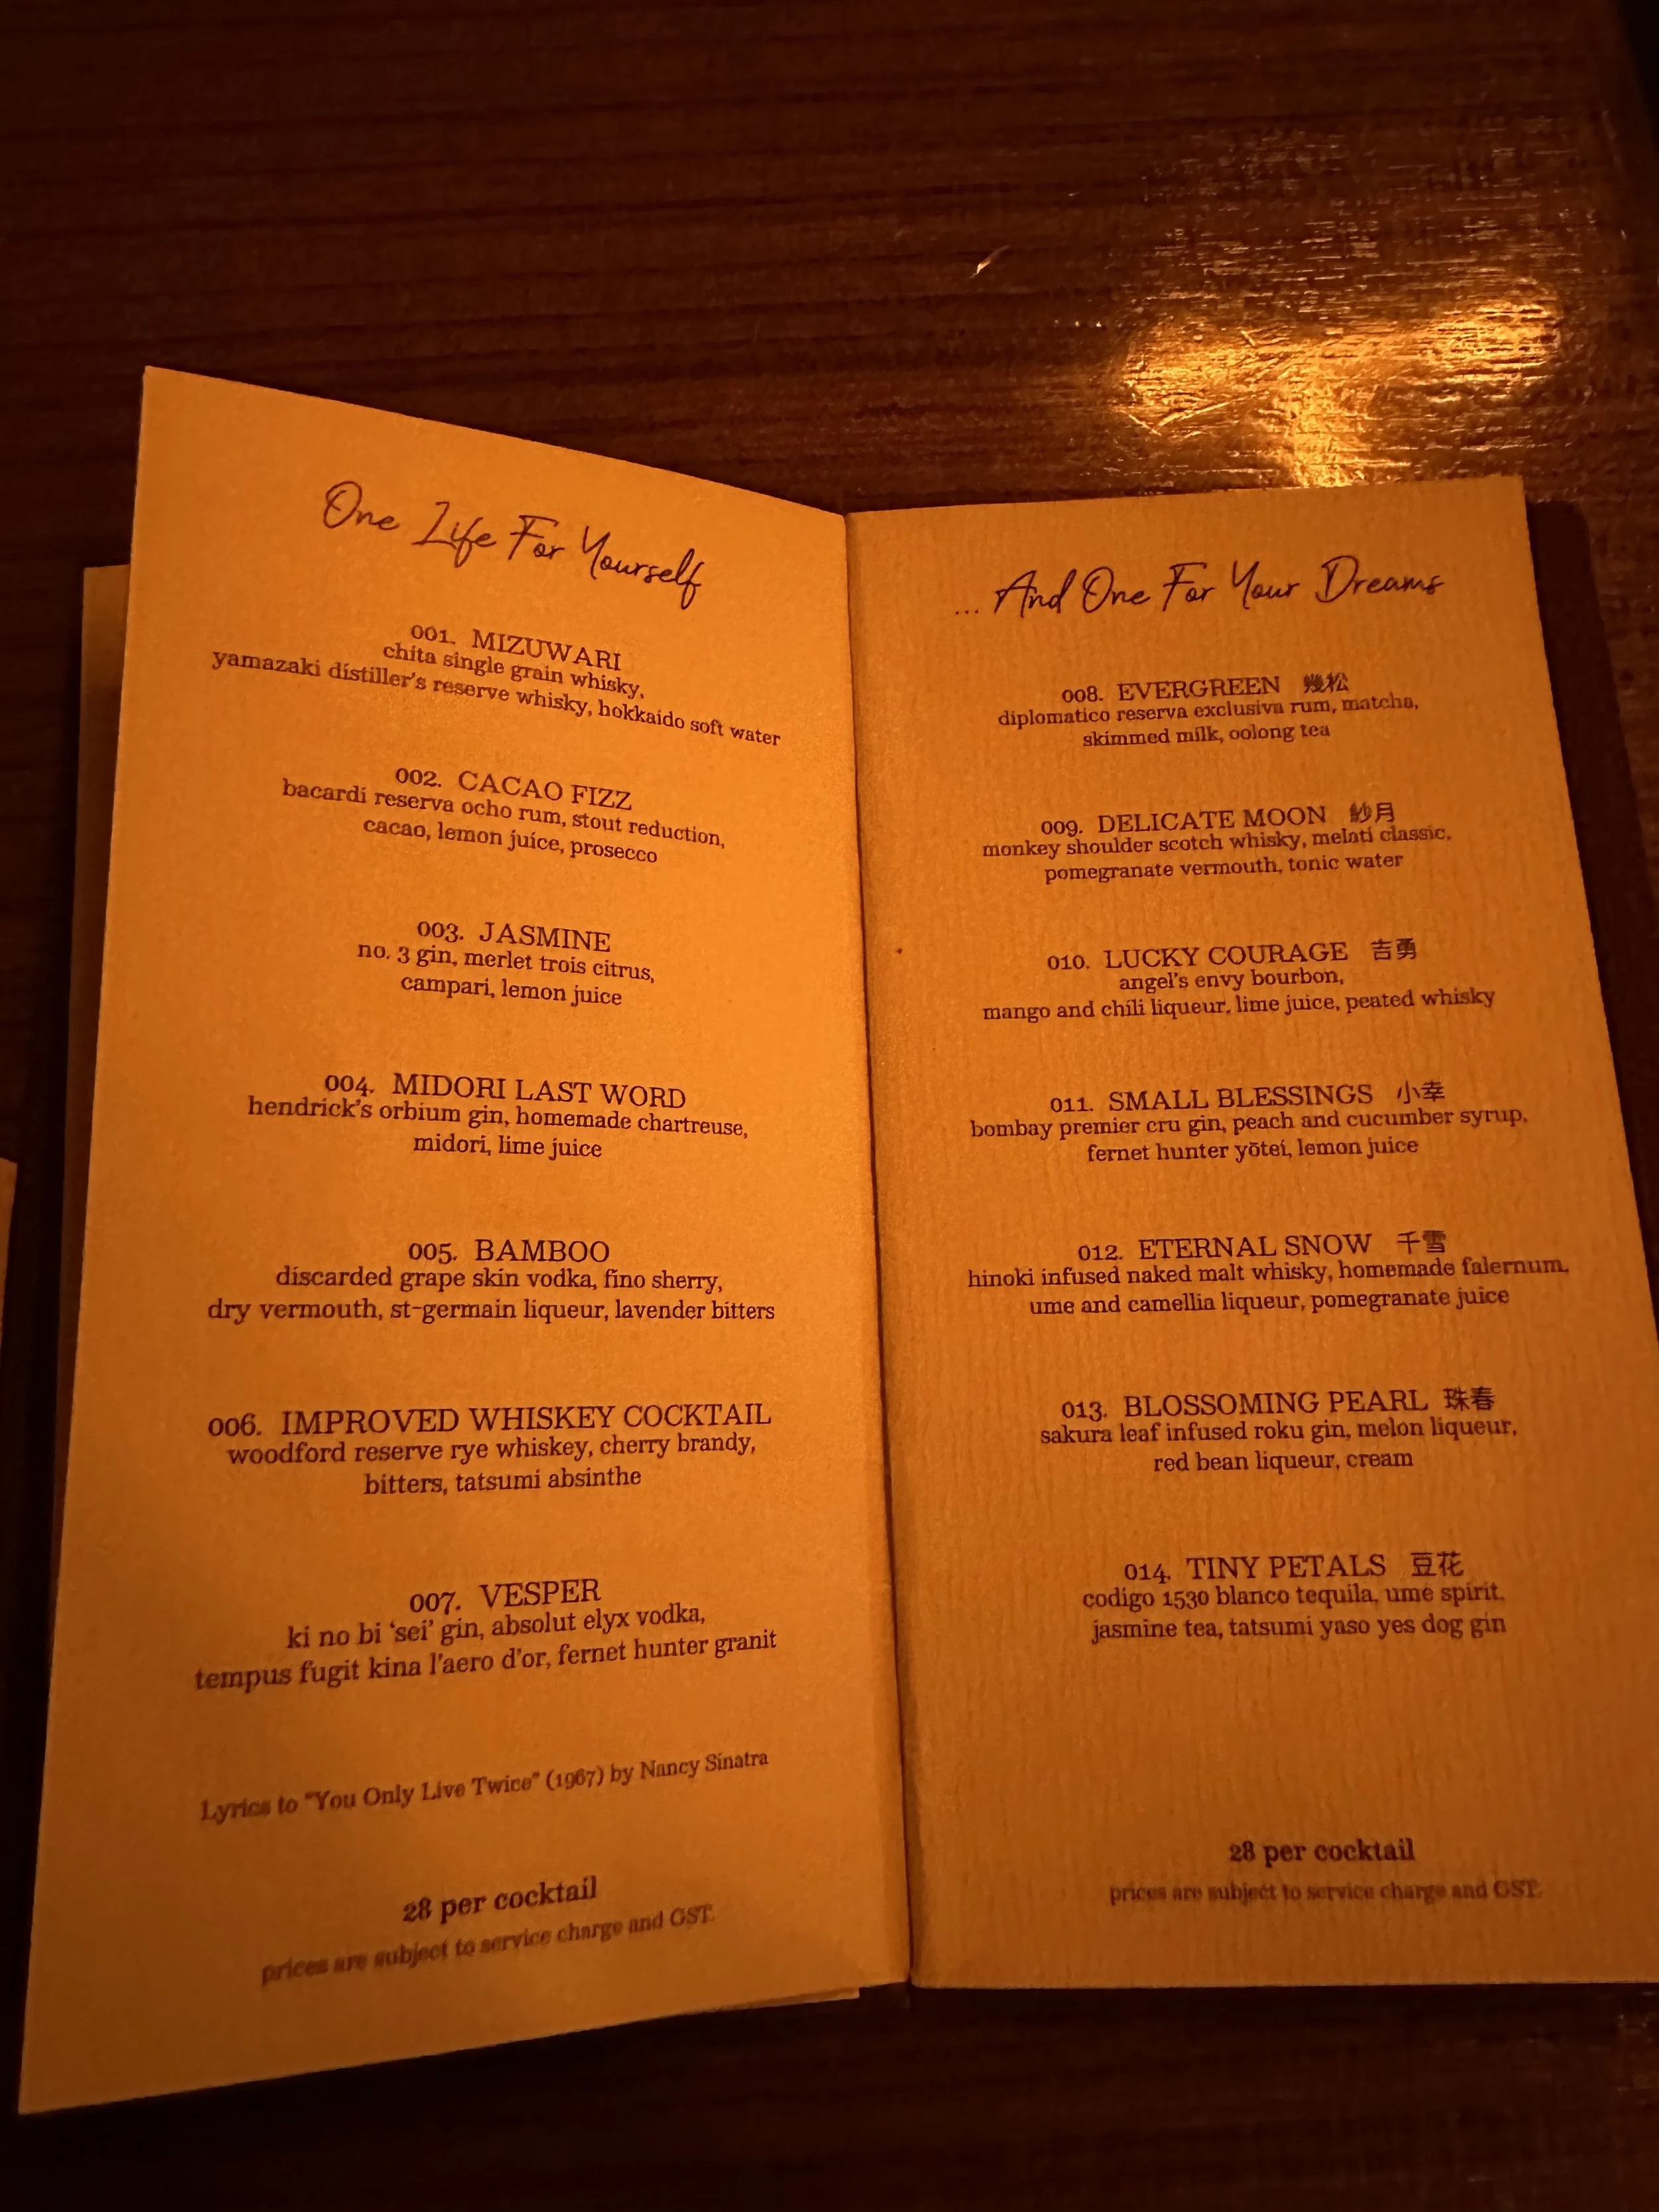 One Life For Yourself
001. MIZUWARI
chita single grain whisky,
yamazaki distiller's reserve whisky, hokkaido soft water
002. CACAO FIZZ
bacardi reserva ocho rum, stout reduction,
cacao, lemon juice, prosecco
003. JASMINE
no. 3 gin, merlet trois citrus,
campari, lemon juice
004. MIDORI LAST WORD
hendrick's orbium gin, homemade chartreuse,
midori, lime juice
005. BAMBOO
discarded grape skin vodka, fino sherry,
dry vermouth, st-germain liqueur, lavender bitters
006. IMPROVED WHISKEY COCKTAIL
woodford reserve rye whiskey, cherry brandy,
bitters, tatsumi absinthe
007. VESPER
ki no bi 'sei' gin, absolut elyx vodka,
tempus fugit kina l'aero d'or, fernet hunter granit
Lyrics to "You Only Live Twice" (1967) by Nancy Sinatra
28 per cocktail
prices are subject to service charge and GST.
... And One For Your Dreams
008. EVERGREEN 幾松
diplomatico reserva exclusiva rum, matcha,
skimmed milk, oolong tea
009. DELICATE MOON 紗月
monkey shoulder scotch whisky, melati classic,
pomegranate vermouth, tonic water
010. LUCKY COURAGE 吉勇
angel's envy bourbon,
mango and chili liqueur, lime juice, peated whisky
011. SMALL BLESSINGS 小幸
bombay premier cru gin, peach and cucumber syrup,
fernet hunter yōtei, lemon juice
012. ETERNAL SNOW 千雪
hinoki infused naked malt whisky, homemade falernum,
ume and camellia liqueur, pomegranate juice
013. BLOSSOMING PEARL 珠春
sakura leaf infused roku gin, melon liqueur,
red bean liqueur, cream
014. TINY PETALS 豆花
codigo 1530 blanco tequila, ume spirit,
jasmine tea, tatsumi yaso yes dog gin
28 per cocktail
prices are subject to service charge and GST.